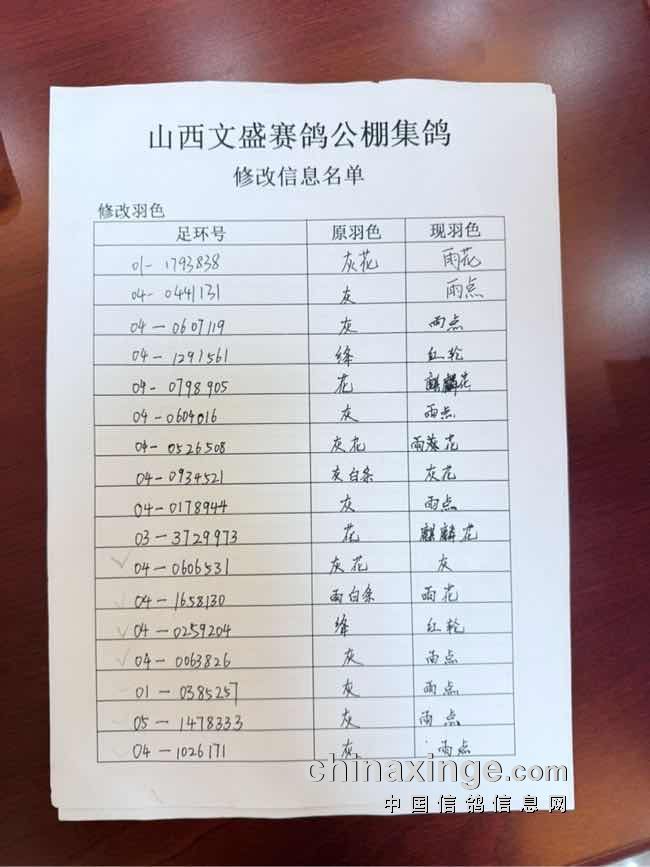 山西文盛赛鸽公棚集鸽
修改信息名单
修改羽色
足环号 原羽色 现羽色
01-1793838 灰花 雨花
04-0441131 灰 雨点
04-0607119 灰 雨点
04-1291561 绛 红轮
04-0798905 花 麒麟花
04-0604016 灰 雨点
04-0526508 灰花 花
04-0934521 灰白条 灰花
04-0178944 灰 雨点
03-3729973 花 麒麟花
04-0606531 灰花 灰
04-1658130 雨白条 雨花
04-0259204 绛 红轮
04-0063826 灰 雨点
01-0385257 灰 雨点
05-1478333 灰 雨点
04-1026171 灰 雨点
chinaxinge.com
中国信鸽信息网